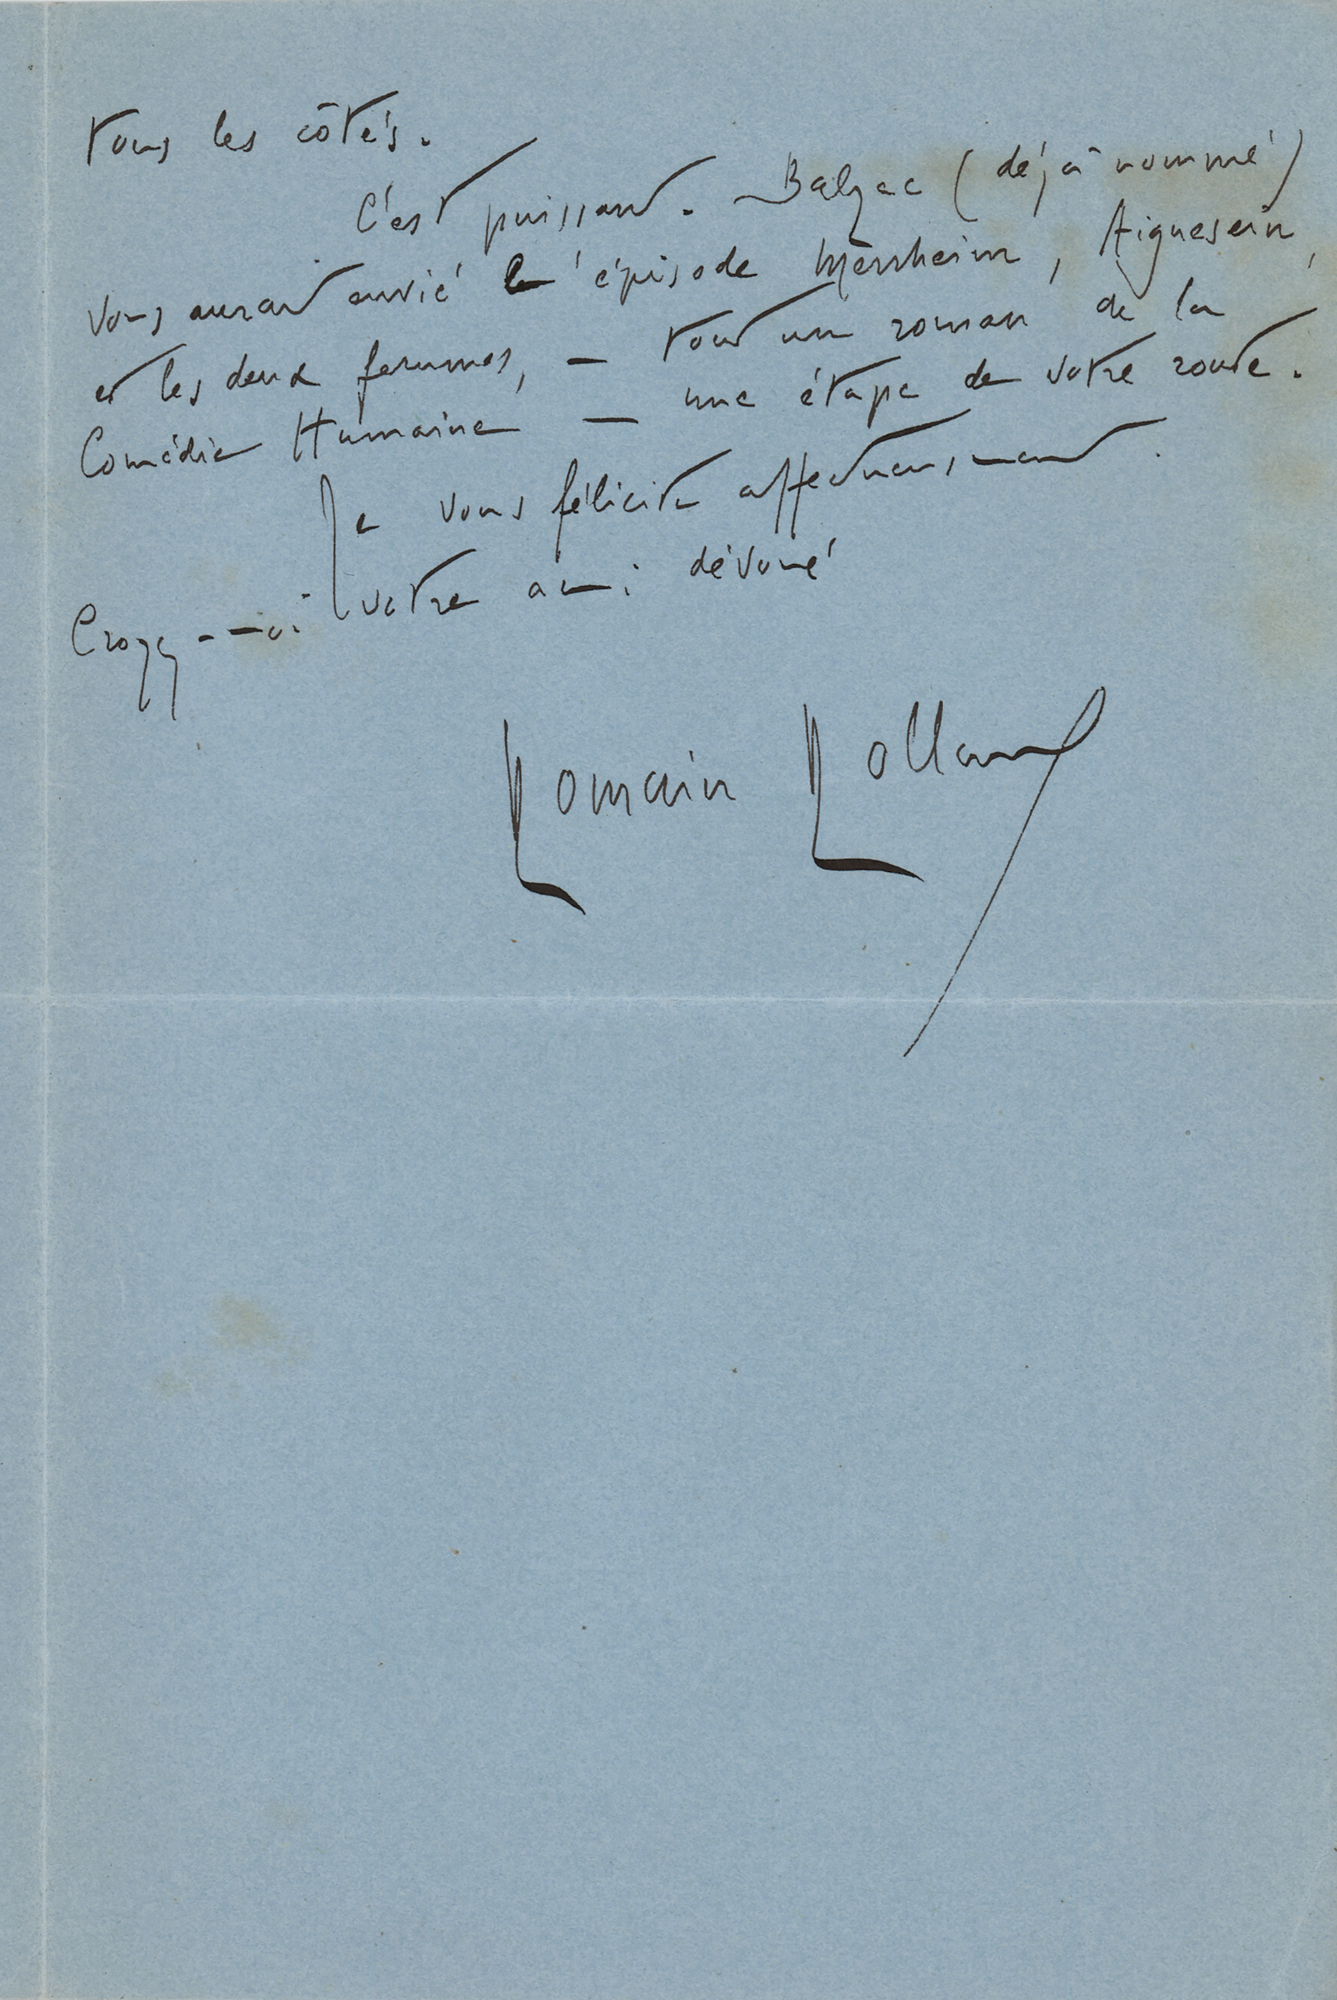 tous les côtés.
C'est puissant. Balzac (déjà nommé)
vous aurait envié l'épisode Merrheim, Aiguesein,
et les deux femmes, — tout un roman de la
Comédie Humaine — une étape de votre route.
Je vous félicite affectueusement.
Croyez-moi votre ami dévoué
Romain Rolland